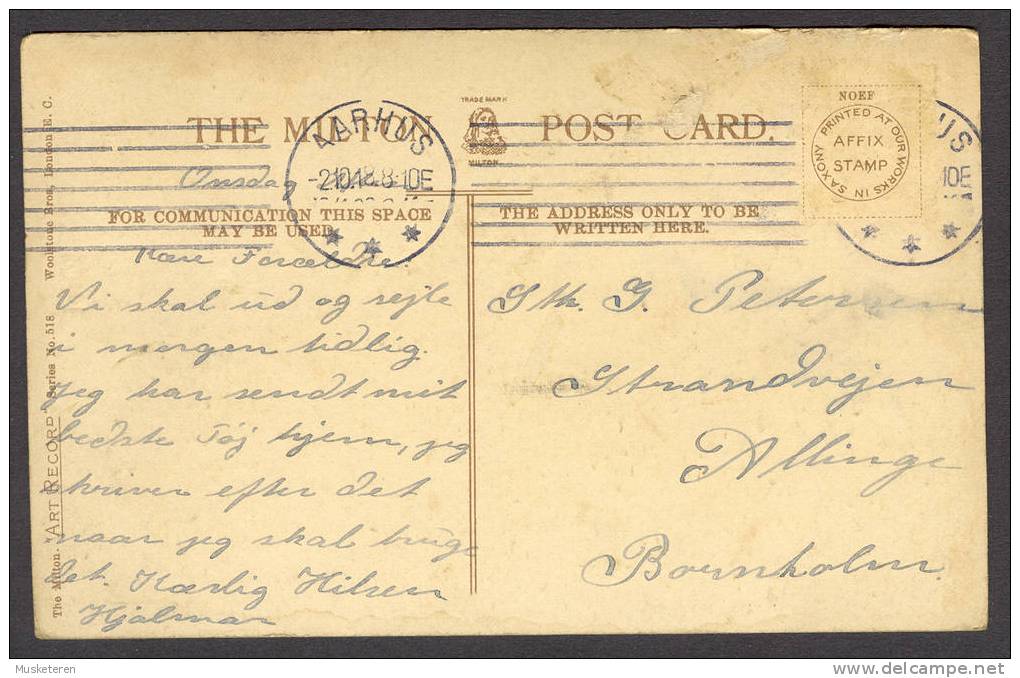 TRADE MARK
THE MILTON POST CARD.
MILTON
NOEF
PRINTED AT OUR WORKS IN SAXONY
AFFIX
STAMP
AARHUS
-2.10.18.8-10E
US
10E
Onsdag
FOR COMMUNICATION THIS SPACE
MAY BE USED
THE ADDRESS ONLY TO BE
WRITTEN HERE.
Kære Forældre.
Vi skal ud og rejse
i morgen tidlig.
Jeg har sendt mit
bedste Tøj hjem, jeg
skriver efter det
naar jeg skal bruge
det. Kærlig Hilsen
Hjalmar
G. Petersen
Strandvejen
Allinge
Bornholm.
The Milton "ART RECORD" Series No. 518 Woolstone Bros, London E. C.
Musketeren
delcampe.net